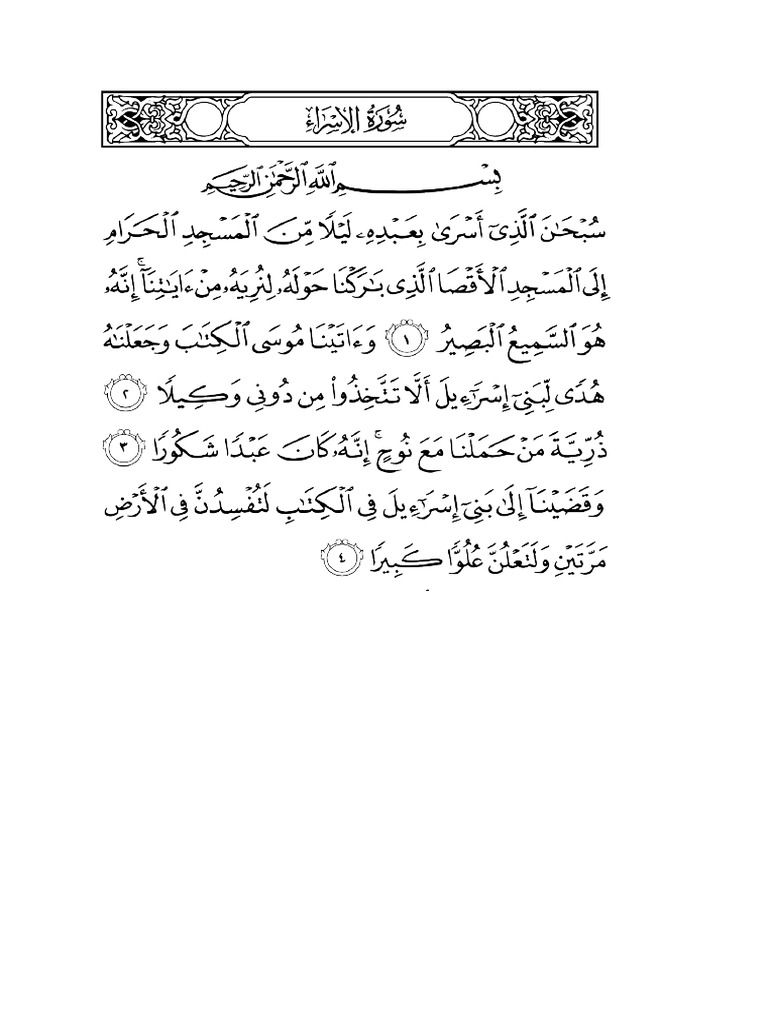 سُورَةُ الإِسۡرَاءِ
بِسۡمِ ٱللَّهِ ٱلرَّحۡمَٰنِ ٱلرَّحِيمِ
سُبۡحَٰنَ ٱلَّذِيٓ أَسۡرَىٰ بِعَبۡدِهِۦ لَيۡلٗا مِّنَ ٱلۡمَسۡجِدِ ٱلۡحَرَامِ
إِلَى ٱلۡمَسۡجِدِ ٱلۡأَقۡصَا ٱلَّذِي بَٰرَكۡنَا حَوۡلَهُۥ لِنُرِيَهُۥ مِنۡ ءَايَٰتِنَآۚ إِنَّهُۥ
هُوَ ٱلسَّمِيعُ ٱلۡبَصِيرُ ١ وَءَاتَيۡنَا مُوسَى ٱلۡكِتَٰبَ وَجَعَلۡنَٰهُ
هُدٗى لِّبَنِيٓ إِسۡرَٰٓءِيلَ أَلَّا تَتَّخِذُواْ مِن دُونِي وَكِيلٗا ٢
ذُرِّيَّةَ مَنۡ حَمَلۡنَا مَعَ نُوحٍۚ إِنَّهُۥ كَانَ عَبۡدٗا شَكُورٗا ٣
وَقَضَيۡنَآ إِلَىٰ بَنِيٓ إِسۡرَٰٓءِيلَ فِي ٱلۡكِتَٰبِ لَتُفۡسِدُنَّ فِي ٱلۡأَرۡضِ
مَرَّتَيۡنِ وَلَتَعۡلُنَّ عُلُوّٗا كَبِيرٗا ٤